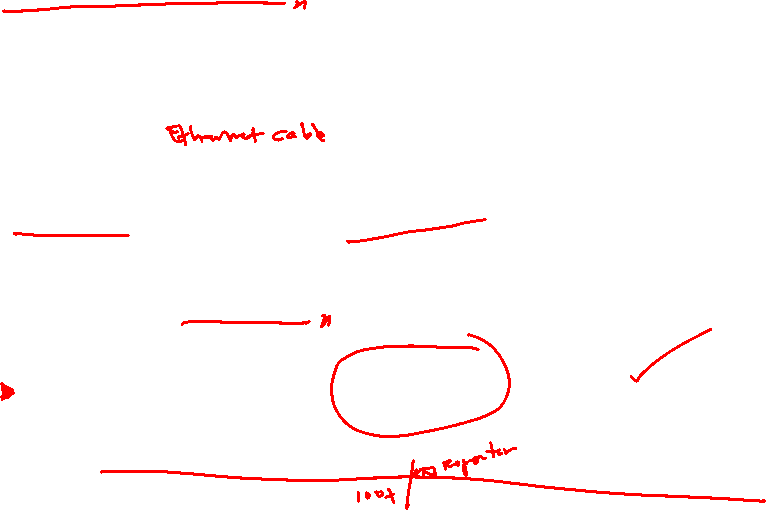 Ethernet cable
Repeater
100